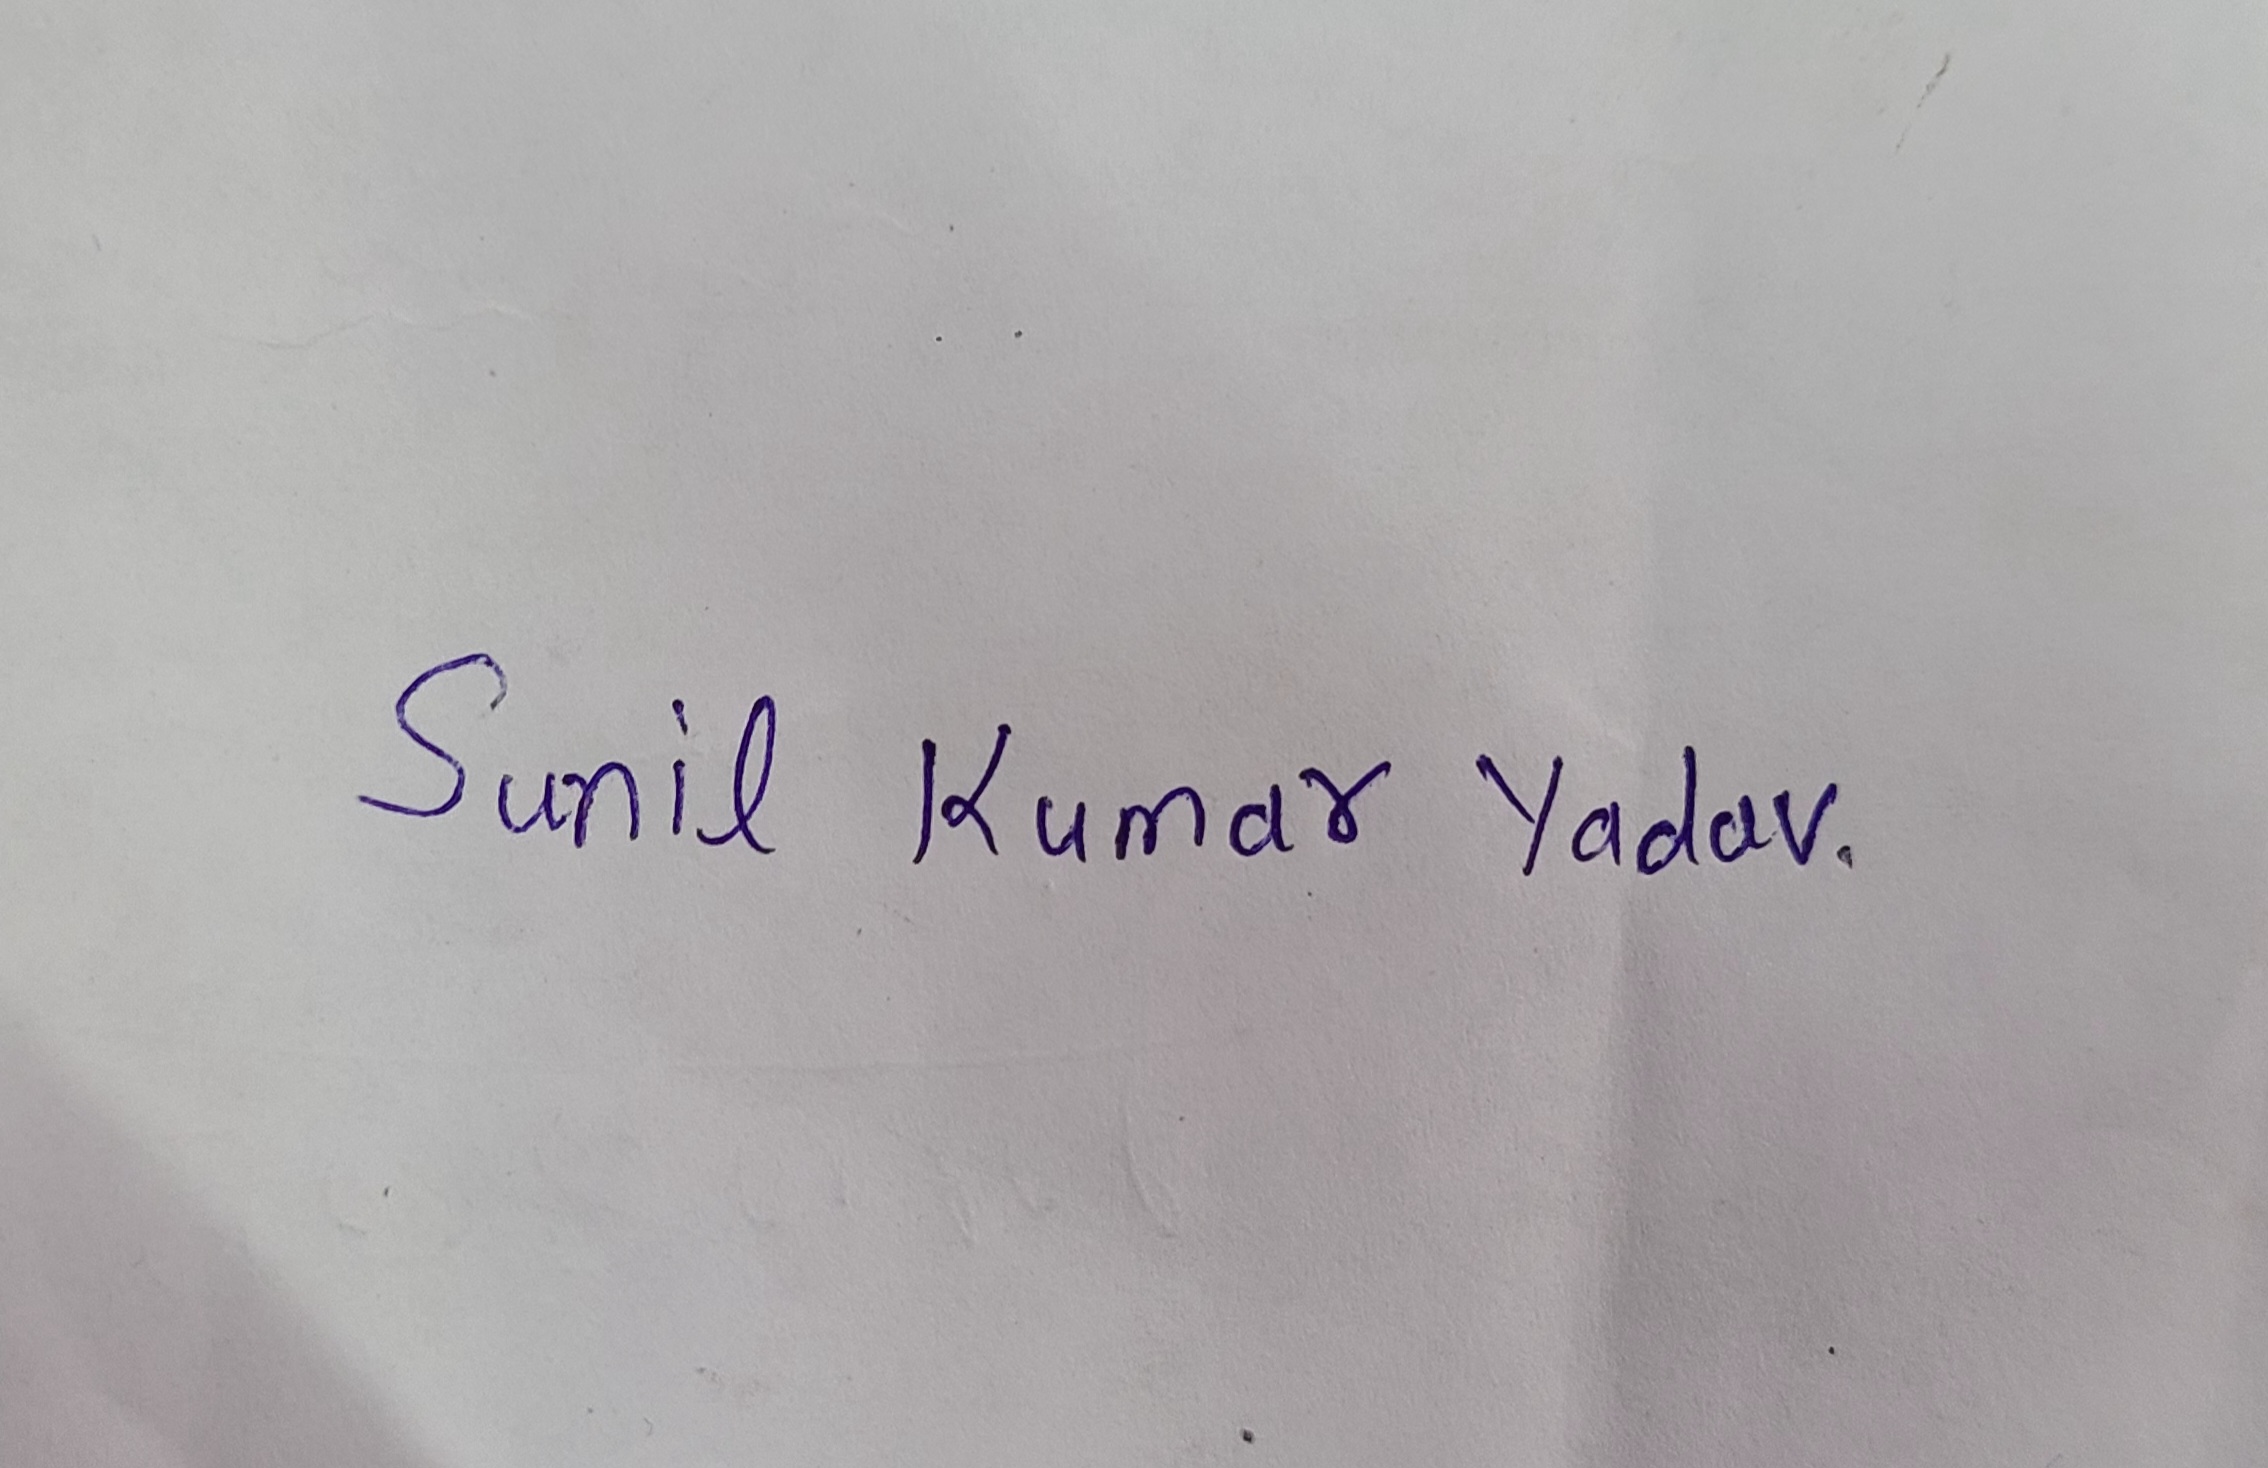 Sunil Kumar Yadav.